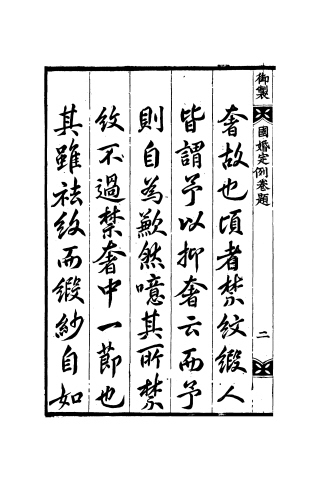 御製
國婚定例卷題
二
奢故也頃者禁紋緞人
皆謂予以抑奢云而予
則自為歉然噫其所禁
紋不過禁奢中一節也
其雖祛紋而緞紗自如